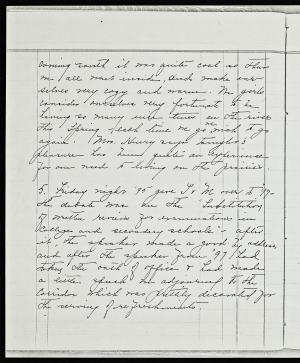 coming south it was quite cool so that
we all went inside, and made our-
selves very cozy and warm. We girls
consider ourselves very fortunate to be
having so many such times on the river
this Spring. Each time we go, we wish to go
again. Mrs. says tonight's
pleasure has been quite an experience
for one used to living on the prairie.
5. Friday night '95 gave over to '97
the debate was on the "Substitution
of written reviews for examinations in
College and secondary schools", after
it, the speaker made a good address,
and after the speaker from '97 had
taken the oath of office & had made
a little speech, we adjourned to the
corridor which was prettily decorated for
the serving of refreshments.